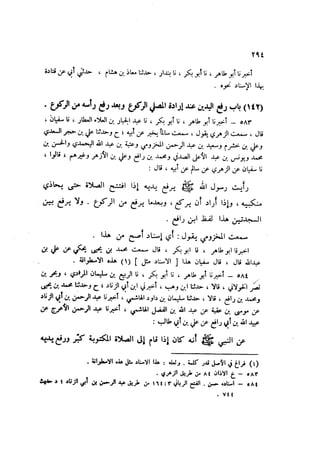 ٢٩٤
أخبرنا أبو طاهر ، نا أبو بكر ، نا بندار ، حدثنا معاذ بن هشام ، حدثني أبي عن قتادة
بهذا الإسناد نحوه .
(١٤٢) باب رفع اليدين عند إرادة المصلي الركوع وبعد رفع رأسه من الركوع .
٥٨٣ – أخبرنا أبو طاهر ، نا أبو بكر ، نا عبد الجبار بن العلاء العطار ، نا سفيان ،
قال ، سمعت الزهري يقول ، سمعت سالماً يخبر عن أبيه ؛ ح وحدثنا علي بن حجر السعدي
وعلي بن خشرم وسعيد بن عبد الرحمن المخزومي وعتبة بن عبد الله اليحمدي والحسن بن
محمد ويونس بن عبد الأعلى الصدفي ومحمد بن رافع وعلي بن الأزهر وغيرهم ، قالوا ،
نا سفيان عن الزهري عن سالم عن أبيه ، قال :
رأيت رسول الله ﷺ يرفع يديه إذا افتتح الصلاة حتى يحاذي
منكبيه ، وإذا أراد أن يركع ، وبعدما يرفع من الركوع . ولا يرفع بين
السجدتين هذا لفظ ابن رافع .
سمعت المخزومي يقول : أي إسناد أصح من هذا .
اخبرنا ابو طاهر ، نا ابو بكر ، نا قال سمعت محمد بن يحيى يحكي عن علي بن
عبدالله قال ، قال سفيان هذا [ الاسناد مثل ] (١) هذه الاسطوانة .
٥٨٤ – أخبرنا أبو طاهر ، نا أبو بكر ، نا الربيع بن سليمان المرادي ، وبحر بن
نصر الخولاني ، قالا ، حدثنا ابن وهب ، أخبرني ابن أبي الزناد ؛ ح وحدثنا محمد بن يحيى
ومحمد بن رافع ، قالا ، حدثنا سليمان بن داود الهاشمي ، أخبرنا عبد الرحمن بن أبي الزناد
عن موسى بن عقبة عن عبد الله بن الفضل الهاشمي ، أخبرنا عبد الرحمن الأعرج عن
عبيد الله بن أبي رافع عن علي بن أبي طالب :
عن النبي ﷺ أنه كان إذا قام إلى الصلاة المكتوبة كبّر ورفع يديه
(١) فراغ في الأصل قدر كلمة . ولعله : هذا الاسناد مثل هذه الاسطوانة .
٥٨٣ – خ الاذان ٨٤ من طريق الزهري .
٥٨٤ – اسناده حسن . الفتح الرباني ٣ : ١٦٤ من طريق عبد الرحمن بن أبي الزناد ؛ د حديث
٧٤٤ .